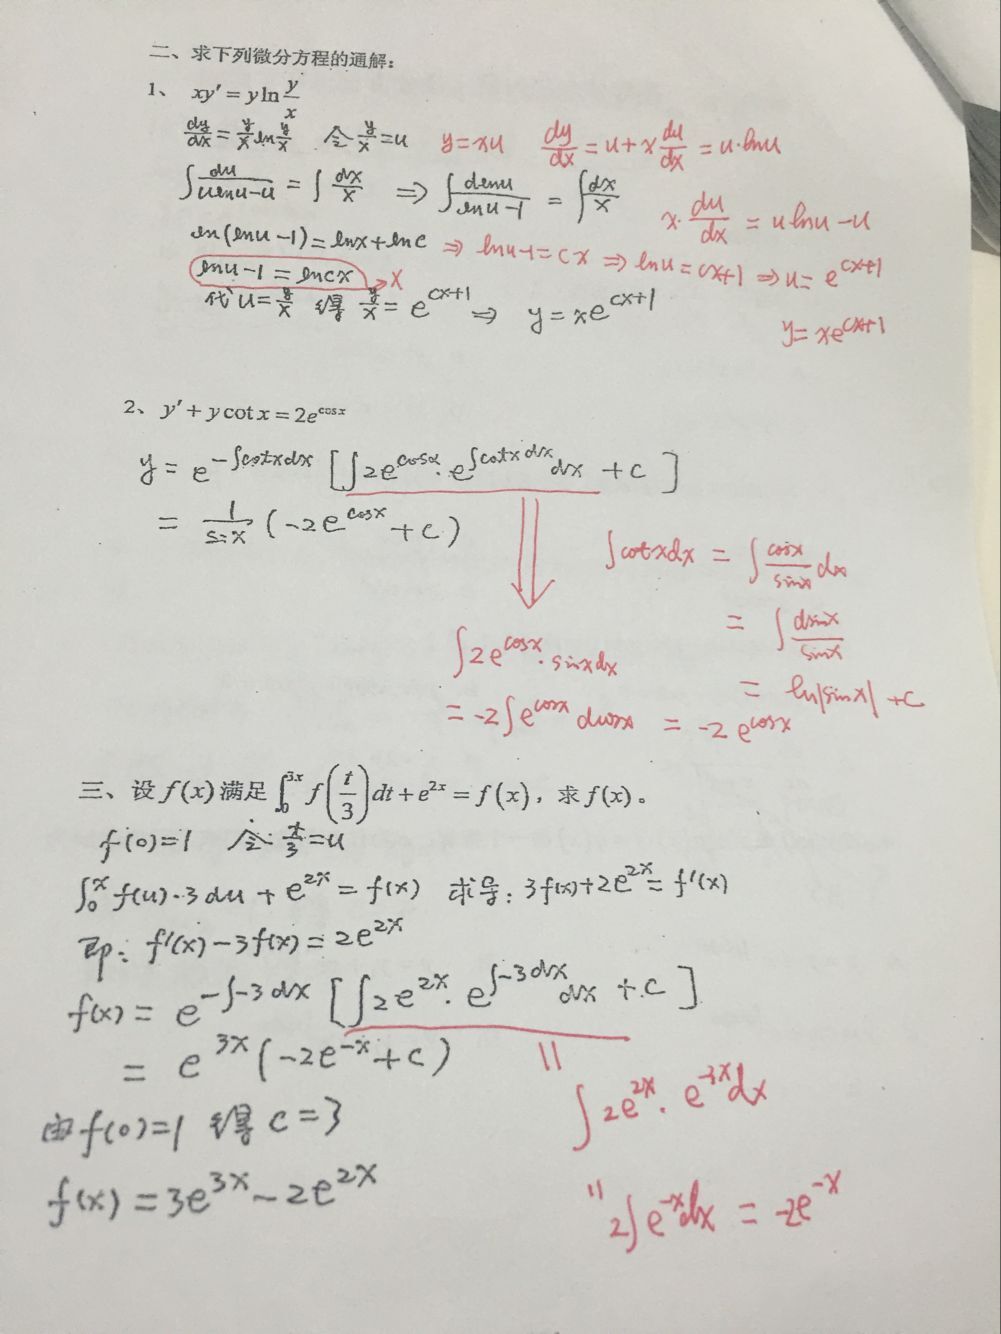 二、求下列微分方程的通解：
1、 xy′ = y ln y/x
dy/dx = y/x ln y/x 令 y/x = u y = xu dy/dx = u + x du/dx = u·lnu
∫ du/(ulnu-u) = ∫ dx/x ⇒ ∫ dlnu/(lnu-1) = ∫ dx/x x·du/dx = ulnu-u
ln(lnu-1) = lnx + lnc ⇒ lnu-1 = cx ⇒ lnu = cx+1 ⇒ u = e^(cx+1)
lnu-1 = lncx → x
代 u = y/x 得 y/x = e^(cx+1) ⇒ y = xe^(cx+1) y = xe^(cx+1)
2、 y′ + y cot x = 2e^(cosx)
y = e^(-∫cotxdx) [∫2e^(cosx)·e^(∫cotxdx)dx + c]
= 1/sinx (-2e^(cosx) + c)
∫cotxdx = ∫ cosx/sinx dx
= ∫ dsinx/sinx
= ln|sinx| + c
∫2e^(cosx)·sinxdx
= -2∫e^(cosx) dcosx = -2e^(cosx)
三、设 f(x) 满足 ∫₀^(3x) f(t/3)dt + e^(2x) = f(x)，求 f(x)。
f(0)=1 令 t/3 = u
∫₀^x f(u)·3du + e^(2x) = f(x) 求导：3f(x)+2e^(2x) = f′(x)
即：f′(x)-3f(x) = 2e^(2x)
f(x) = e^(-∫-3dx) [∫2e^(2x)·e^(∫-3dx)dx + c]
= e^(3x)(-2e^(-x)+c)
∫2e^(2x)·e^(-3x)dx
由f(0)=1 得 c=3
f(x) = 3e^(3x)-2e^(2x)
2∫e^(-x)dx = -2e^(-x)